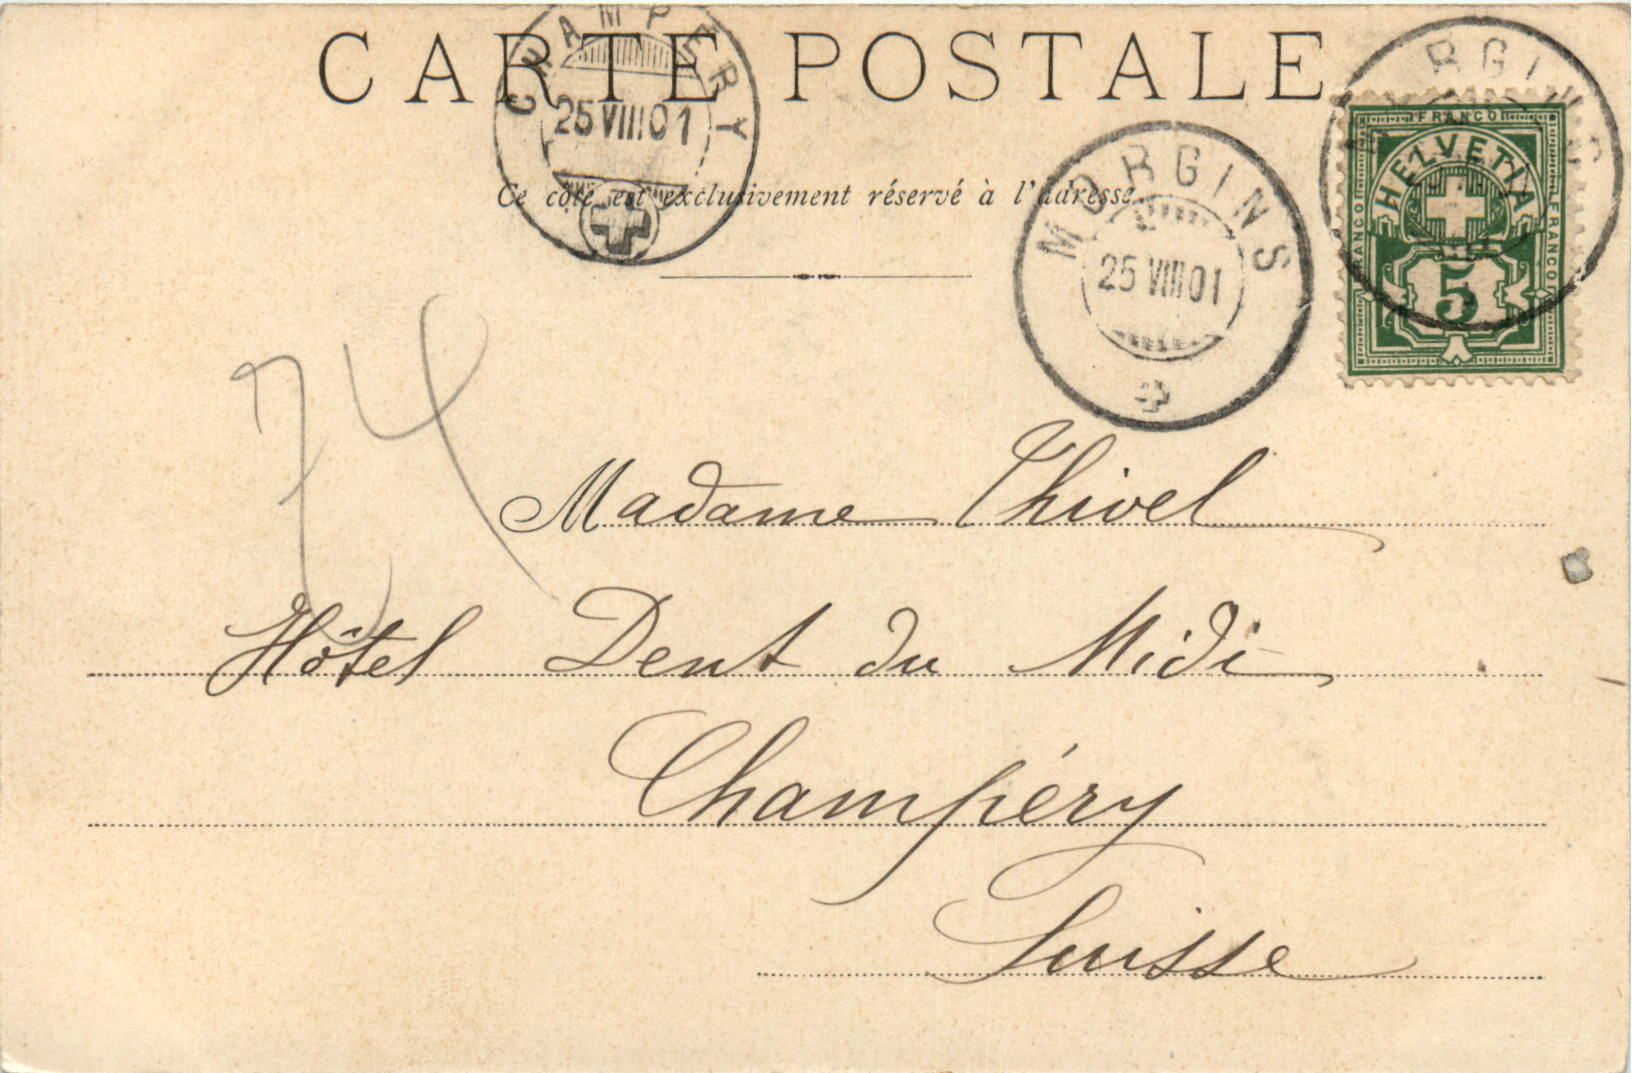 CARTE POSTALE
CHAMPERY
25 VIII 01
Ce côté est exclusivement réservé à l'adresse.
MORGINS
25 VIII 01
MORGINS
FRANCO
FRANCO
FRANCO
HELVETIA
5
74
Madame Thivel
Hôtel Dent du Midi
Champéry
Suisse